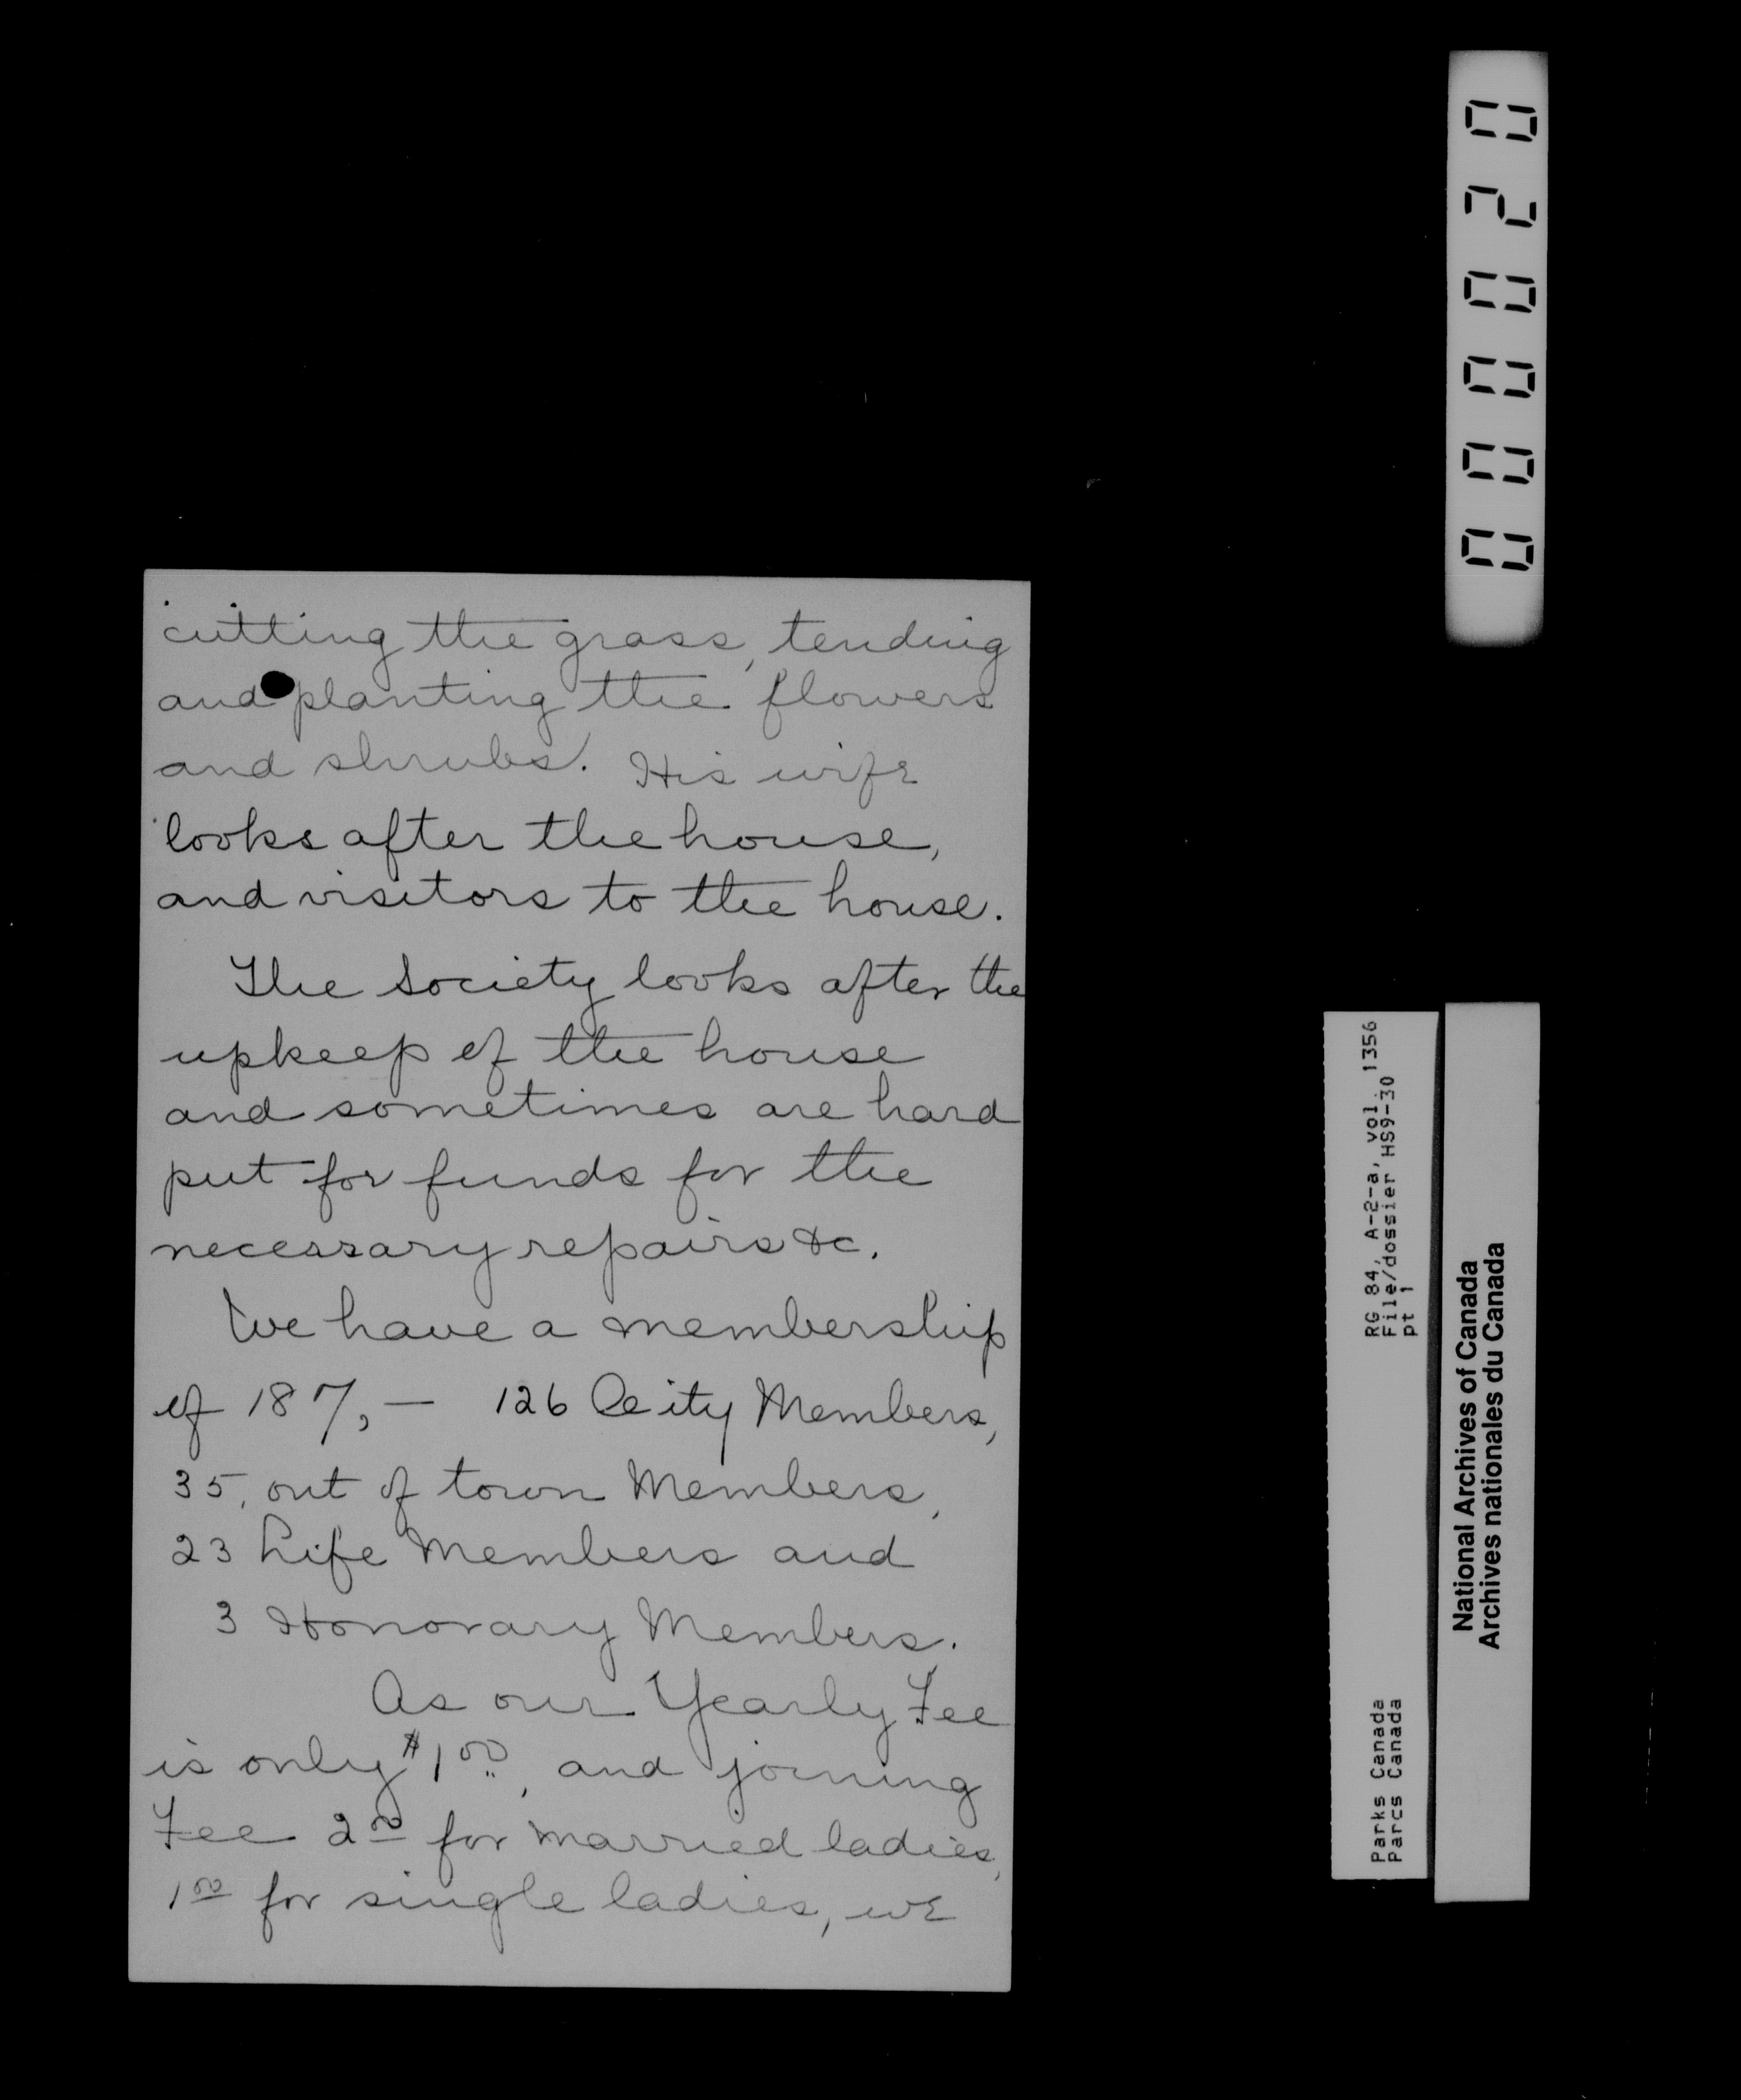 cutting the grass, tending
and planting the flowers
and shrubs. His wife
looks after the house,
and visitors to the house.
The Society looks after the
upkeep of the house
and sometimes are hard
put for funds for the
necessary repairs &c.
We have a membership
of 187, — 126 City Members,
35, out of town Members,
23 Life Members and
3 Honorary Members.
As our Yearly Fee
is only $1.00, and joining
Fee 2.00 for married ladies,
1.00 for single ladies, we
000020
RG 84, A-2-a, vol. 1356
File/dossier HS9-30
pt 1
Parks Canada
Parcs Canada
National Archives of Canada
Archives nationales du Canada